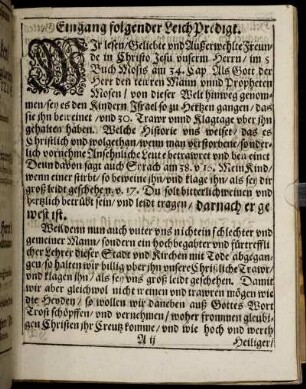 Eingang folgender LeichPredigt.
WIr lesen/Geliebte vnd Außerwehlte Freun-
de in Christo Jesu vnserm Herrn/ im 5
Buch Mosis am 34. Cap. Als Gott der
Herr den tewren Mann vnnd Propheten
Mosen/ von dieser Welt hinweg genom-
men/ sey es den Kindern Israel so zu Hertzen gangen/ das
sie ihn beweinet/ vnd 30. Trawr vnnd Klagtage vber ihn
gehalten haben. Welche Historie vns weiset/ das es
Christlich vnd wolgethan/ wenn man verstorbene/ sonder-
lich vornehme Ansehnliche Leute betrawret vnd beweinet
Denn davon sagt auch Syrach am 38. v. 16. Mein Kind/
wenn einer stirbt/ so beweine ihn/ vnd klage ihn/ als sey dir
groß leidt geschehen/ v. 17. Du solt bitterlich weinen vnd
hertzlich betrübt sein/ vnd leidt tragen/ darnach er ge
west ist.
Weil denn nun auch vnter vns nicht ein schlechter vnd
gemeiner Mann/ sondern ein hochbegabter vnd fürtreffli
cher Lehrer dieser Stadt vnd Kirchen mit Tode abgegan-
gen/ so halten wir billig vber ihn vnsere Christliche Trawr/
vnd klagen ihn/ als sey vns groß leidt geschehen. Damit
wir aber gleichwol nicht weinen vnd trawren mögen wie
die Heyden/ so wollen wir daneben auß Gottes Wort
Trost schöpffen/ vnd vernehmen/ woher frommen gleubi-
gen Christen ihr Creutz komme/ vnd wie hoch vnd werth
A ij
Heiliger/